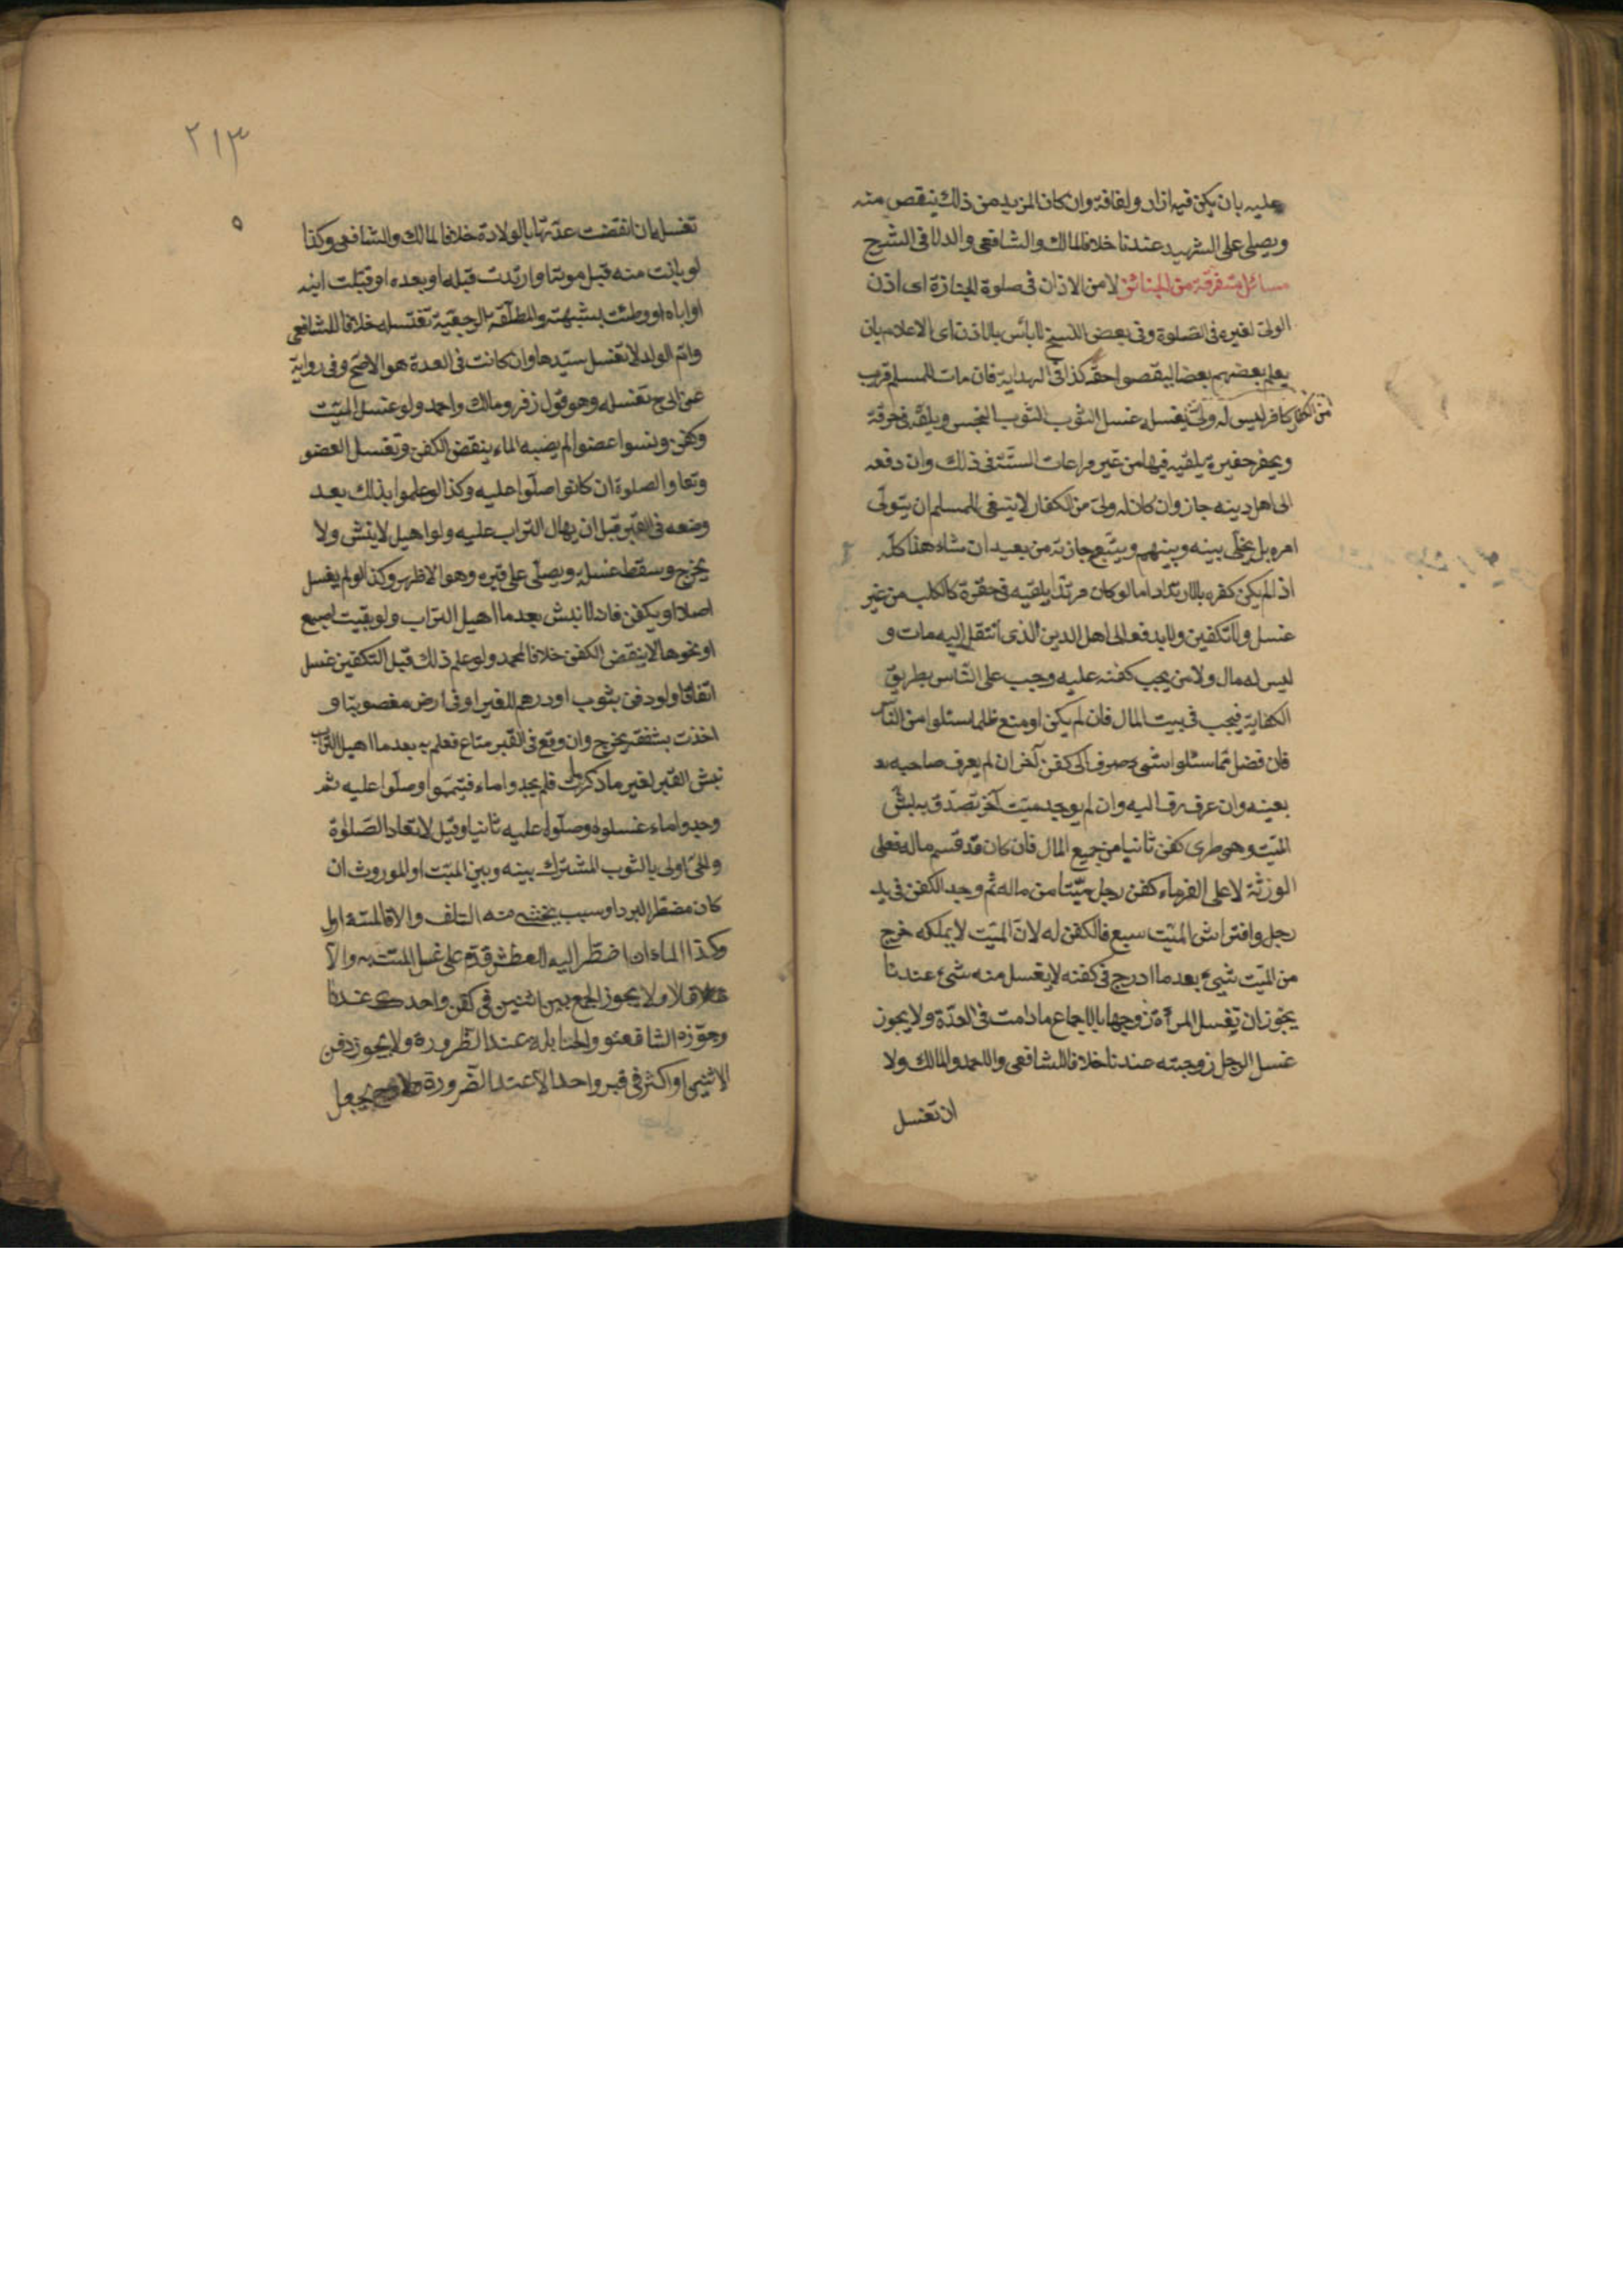 عليه بان يكن فيه ازار ولفافة وان كان المزيد من ذلك ينقص منه
ويصلى على الشهيد عندنا خلافا لمالك والشافعى والدلا فى الشرح
مسائل متفرقة من الجنائز لا من الاذان فى صلوة الجنازة اى اذن
الولى لغيره فى الصلوة وفى بعض النسخ لا بأس بالاذن اى الاعلام بان
يعلم بعضهم بعضا ليقصوا حقه كذا فى الهداية فان مات للمسلم قريب
من الكفار
كافر ليس له ولى يغسله غسل الثوب الثوب النجس ويلفه فى خرقة
ويحفر حفيرة يلقيه فيها من غير مراعات السنة فى ذلك وان دفعه
الى اهل دينه جاز وان كان له ولى من الكفار لا ينبغى للمسلم ان يتولى
امره بل يخلى بينه وبينهم ويتبع جازته من بعيد ان شاء هذا كله
اذا لم يكن كفره بالارتداد اما لو كان مرتدا يلقيه فى حفرة كالكلب من غير
غسل ولا تكفين ولا يدفع الى اهل الدين الذى انتقل اليه مات و
ليس له مال ولا من يجب كفنه عليه وجب على الناس بطريق
الكفاية فيجب فى بيت المال فان لم يكن او منع ظلما سئلوا من الناس
فان فضل مما سئلوا شىء صرف الى كفن آخر ان لم يعرف صاحبه
بعينه وان عرف رد اليه وان لم يوجد ميت آخر تصدق به نبش
الميت وهى طرى كفن ثانيا من جميع المال فان كان قد قسم ماله فعلى
الورثة لا على الغرماء كفن رجل ميتا من ماله ثم وجد الكفن فى يد
رجل وافتراش الميت سبع فالكفن له لان الميت لا يملكه خرج
من الميت شىء بعد ما ادرج فى كفنه لا يغسل منه شىء عندنا
يجوز ان تغسل المرأة زوجها بالاجماع ما دامت فى العدة ولا يجوز
غسل الرجل زوجته عندنا خلافا للشافعى واللحمد والمالك ولا
ان تغسل
٢١٣
تغسل ان انقضت عدتها بالولادة خلافا لمالك والشافعى وكذا
لو بانت منه قبل موته او ارتدت قبله او بعده او قبلت ابنه
او اباه او وطئت بشبهة والمطلقة الرجعية تغتسله خلافا للشافعى
وام الولد لا تغسل سيدها وان كانت فى العدة هو الاصح وفى رواية
عن ابى ح تغسله وهو قول زفر ومالك واحمد ولو غسل الميت
وكفن ونسوا عضوا لم يصبه الماء ينقض الكفن وتغسل العضو
وتعاد الصلوة ان كانوا صلوا عليه وكذا لو علموا بذلك بعد
وضعه فى القبر قبل ان يهال التراب عليه ولو اهيل لا ينش ولا
يخرج وسقط غسله ويصلى على قبره وهو الاظهر وكذا لو لم يغسل
اصلا او يكفن فانه لا ينبش بعد ما اهيل التراب ولو بقيت اصبع
او نحوها لا ينقض الكفن خلافا لمحمد ولو علم ذلك قبل التكفين غسل
اتفاقا ولو دفن بثوب او درهم للغير او فى ارض مغصوبة او
اخذت بشفقة يخرج وان وقع فى القبر متاع فعلم به بعد ما اهيل التراب
نبش القبر لغير ما ذكر فلم يجدوا ماء فيتمموا وصلوا عليه ثم
وجدوا ماء غسلوه وصلوا عليه ثانيا وقيل لا تعاد الصلوة
والحى اولى بالثوب المشترك بينه وبين الميت او الموروث ان
كان مضطر البرد او سبب يخشى منه التلف والا فالميت اولى
وكذا الماء ان اضطر اليه العطش قدم على غسل الميت به والا
فلا ولا يجوز الجمع بين اثنين فى كفن واحد عندنا
وجوزه الشافعى والحنابلة عند الظرورة ولا يجوز دفن
الاثنين او اكثر فى قبر واحد الا عند الضرورة يجعل